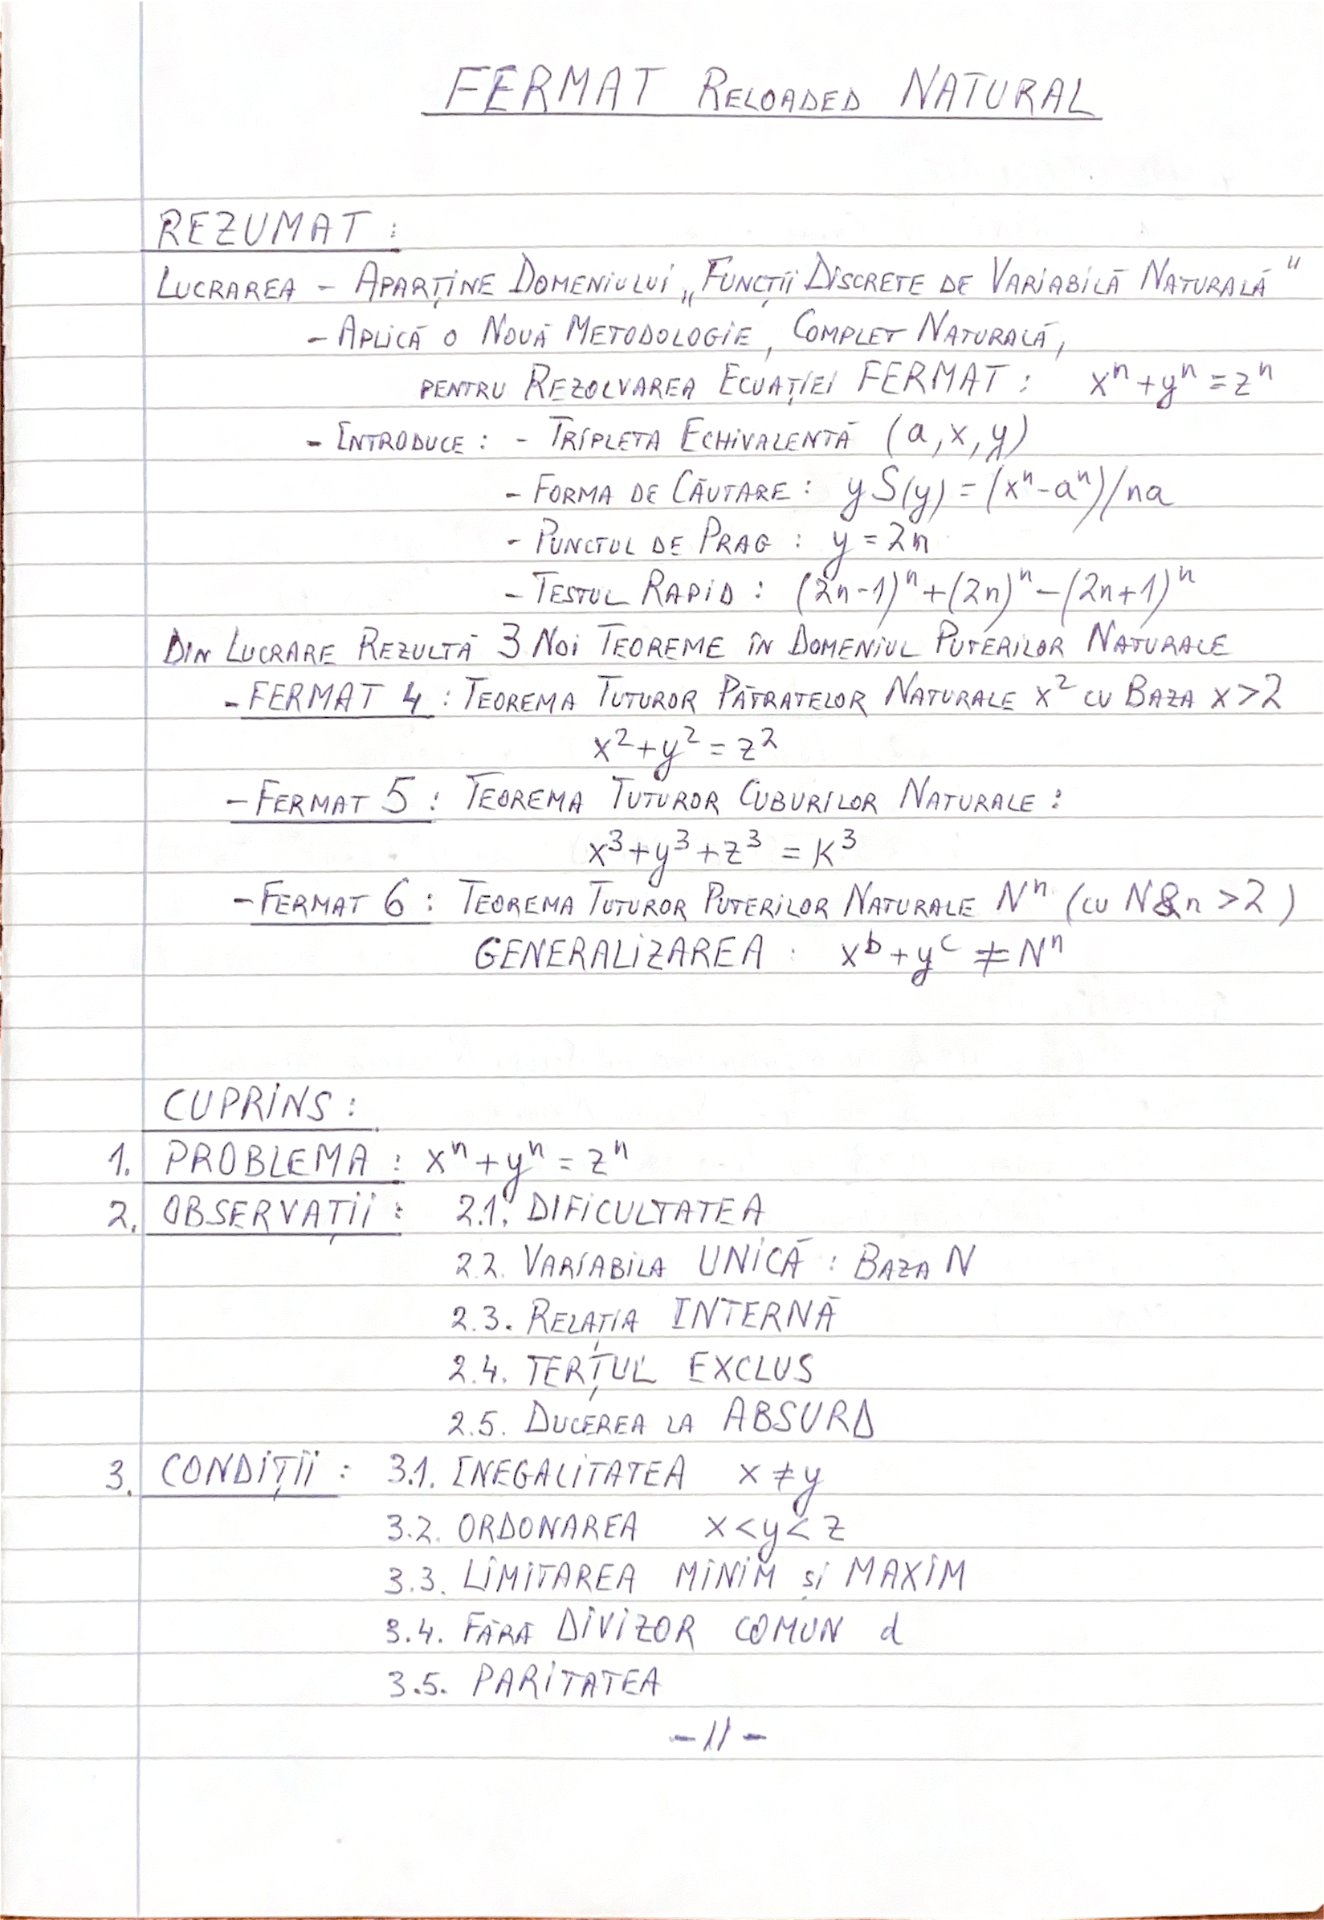 FERMAT RELOADED NATURAL
REZUMAT :
LUCRAREA - APARȚINE DOMENIULUI „FUNCȚII DISCRETE DE VARIABILĂ NATURALĂ"
- APLICĂ O NOUĂ METODOLOGIE, COMPLET NATURALĂ,
PENTRU REZOLVAREA ECUAȚIEI FERMAT : xⁿ + yⁿ = zⁿ
- INTRODUCE : - TRIPLETA ECHIVALENTĂ (a, x, y)
- FORMA DE CĂUTARE : y S(y) = (xⁿ - aⁿ)/na
- PUNCTUL DE PRAG : y = 2n
- TESTUL RAPID : (2n-1)ⁿ + (2n)ⁿ - (2n+1)ⁿ
DIN LUCRARE REZULTĂ 3 NOI TEOREME ÎN DOMENIUL PUTERILOR NATURALE
- FERMAT 4 : TEOREMA TUTUROR PĂTRATELOR NATURALE x² CU BAZA x>2
x² + y² = z²
- FERMAT 5 : TEOREMA TUTUROR CUBURILOR NATURALE :
x³ + y³ + z³ = k³
- FERMAT 6 : TEOREMA TUTUROR PUTERILOR NATURALE Nⁿ (CU N&n >2)
GENERALIZAREA : xᵇ + yᶜ ≠ Nⁿ
CUPRINS :
1. PROBLEMA : xⁿ + yⁿ = zⁿ
2. OBSERVAȚII : 2.1. DIFICULTATEA
2.2. VARIABILA UNICĂ : BAZA N
2.3. RELAȚIA INTERNĂ
2.4. TERȚUL EXCLUS
2.5. DUCEREA LA ABSURD
3. CONDIȚII : 3.1. INEGALITATEA x ≠ y
3.2. ORDONAREA x < y < z
3.3. LIMITAREA MINIM și MAXIM
3.4. FĂRĂ DIVIZOR COMUN d
3.5. PARITATEA
-11-